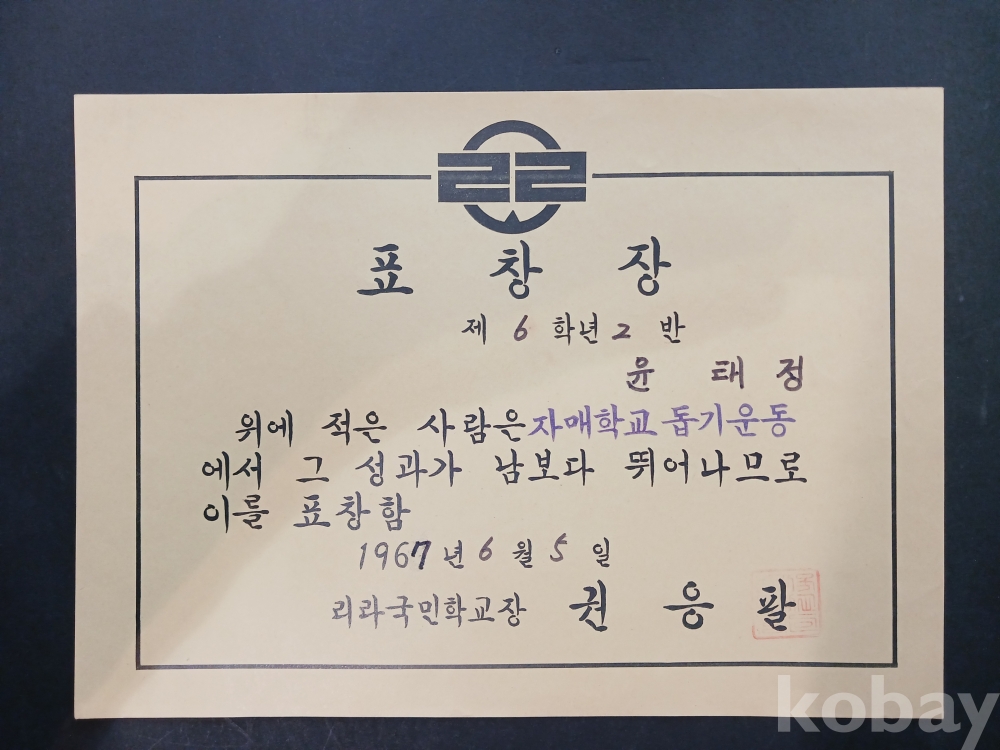 리라
표 창 장
제 6 학년 2 반
윤 태 정
위에 적은 사람은 자매학교 돕기운동
에서 그 성과가 남보다 뛰어나므로
이를 표창함
1967년 6월 5일
리라국민학교장 권 응 팔
kobay